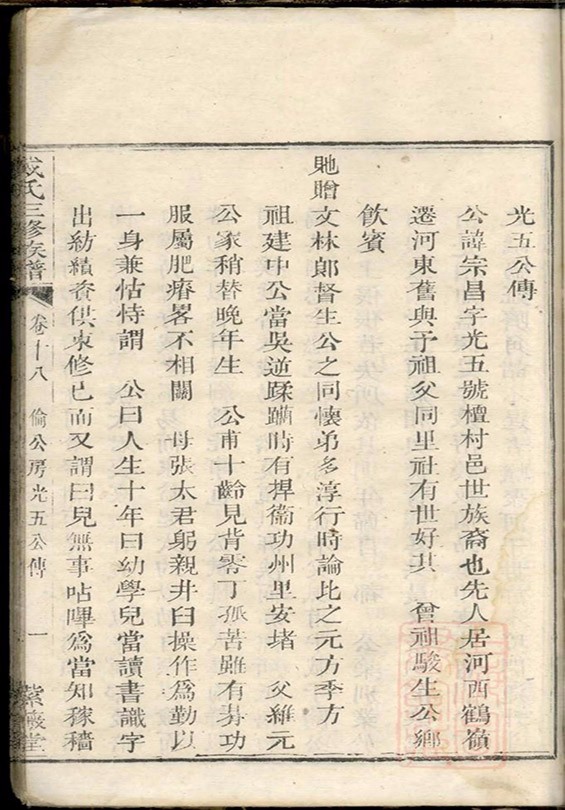 光五公傳
公諱宗昌字光五號檀村邑世族裔也先人居河西鶴嶺
遷河東舊與予祖父同里社有世好其 曾祖駿生公鄉
飲賓
貤贈文林郎督生公之同懷弟多淳行時論比之元方季方
祖建中公當吳逆蹂躪時有捍衞功州里安堵 父維元
公家稍替晚年生 公甫十齡見背零丁孤苦雖有朞功
服屬肥瘠畧不相關 母張太君躬親井臼操作為勤以
一身兼怙恃謂 公曰人生十年曰幼學兒當讀書識字
出紡績資供束修已而又謂曰兒無事呫嗶為當知稼穡
成氏三修族譜 卷十八 倫公房光五公傳 一 紫巖堂